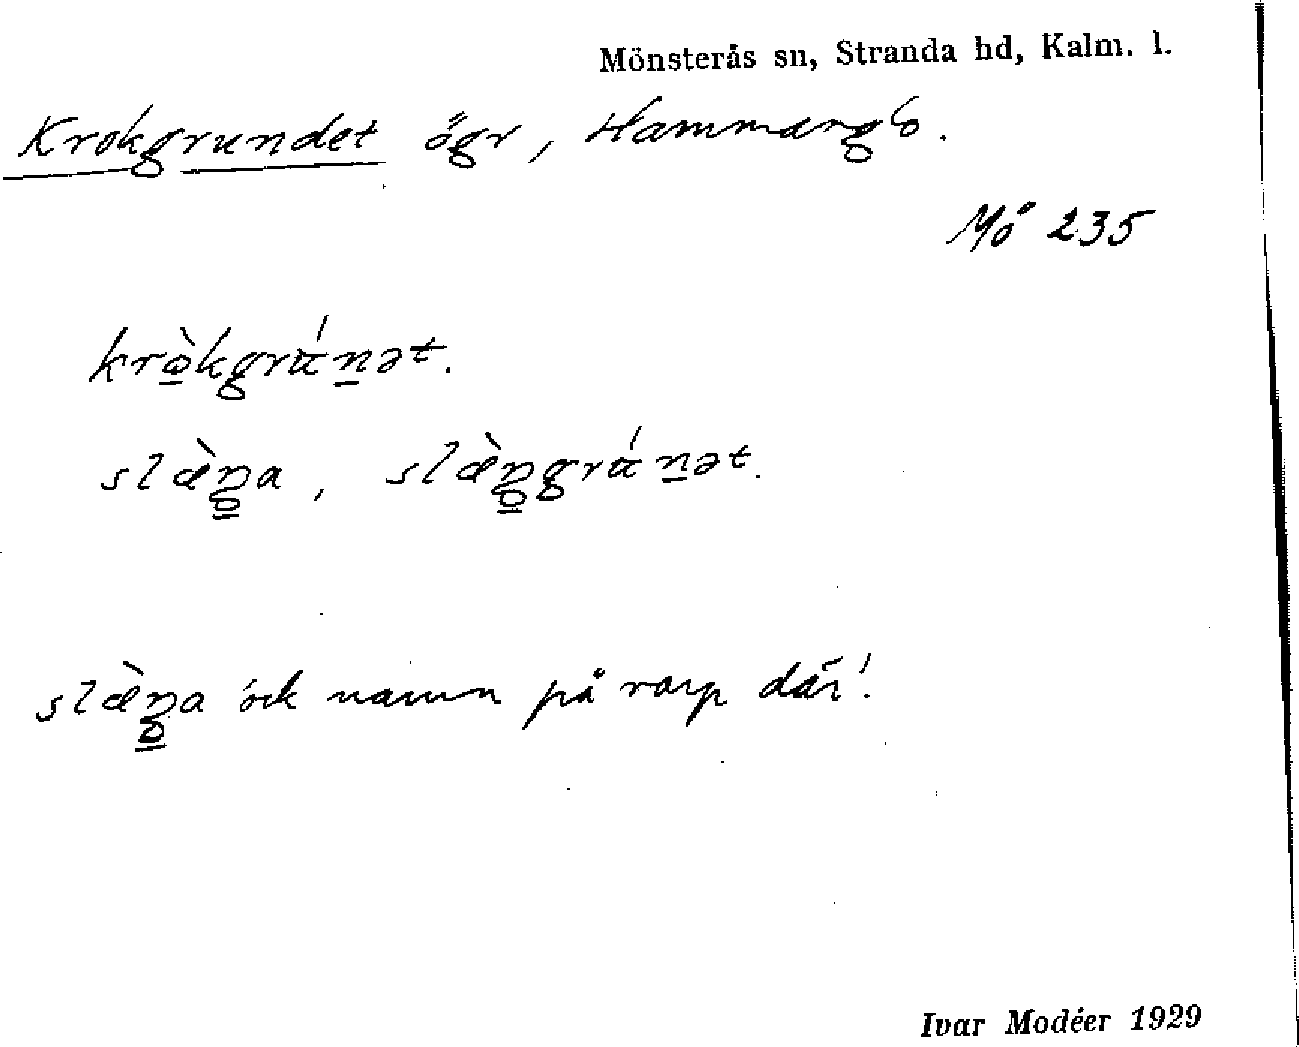 Mönsterås sn, Stranda hd, Kalm. l.
Krokgrundet ögr, Hammargb.
Mö 235
krò̱kgrú̵ṉət.
slæ̀ŋ̱a, slæ̀ŋ̱grú̵ṉət.
slæ̀ŋ̱a 'ock namn på varp där'.
Ivar Modéer 1929